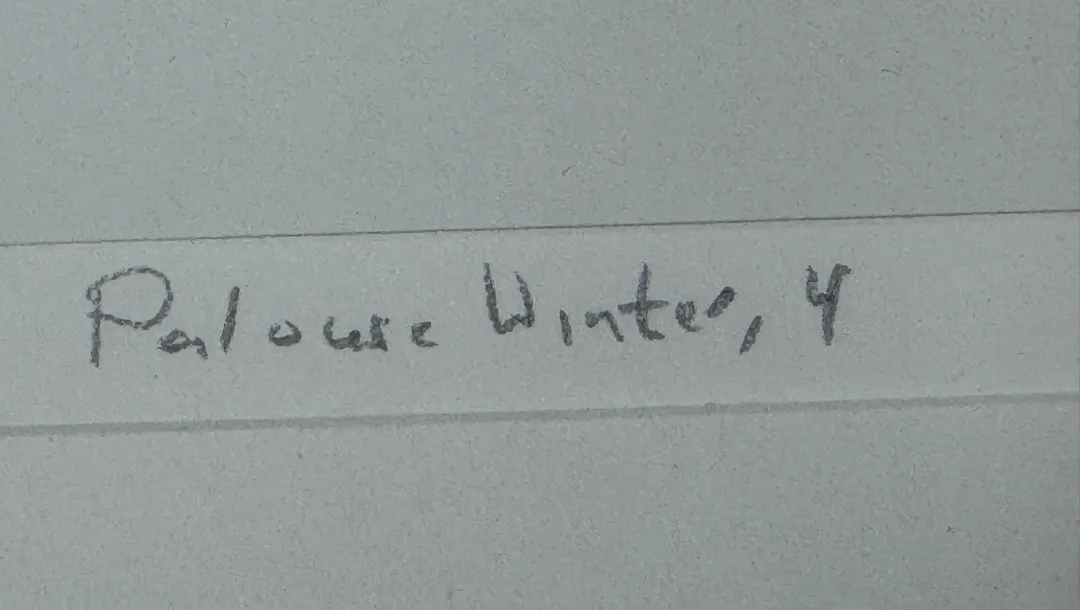 Palouse Winter, 4